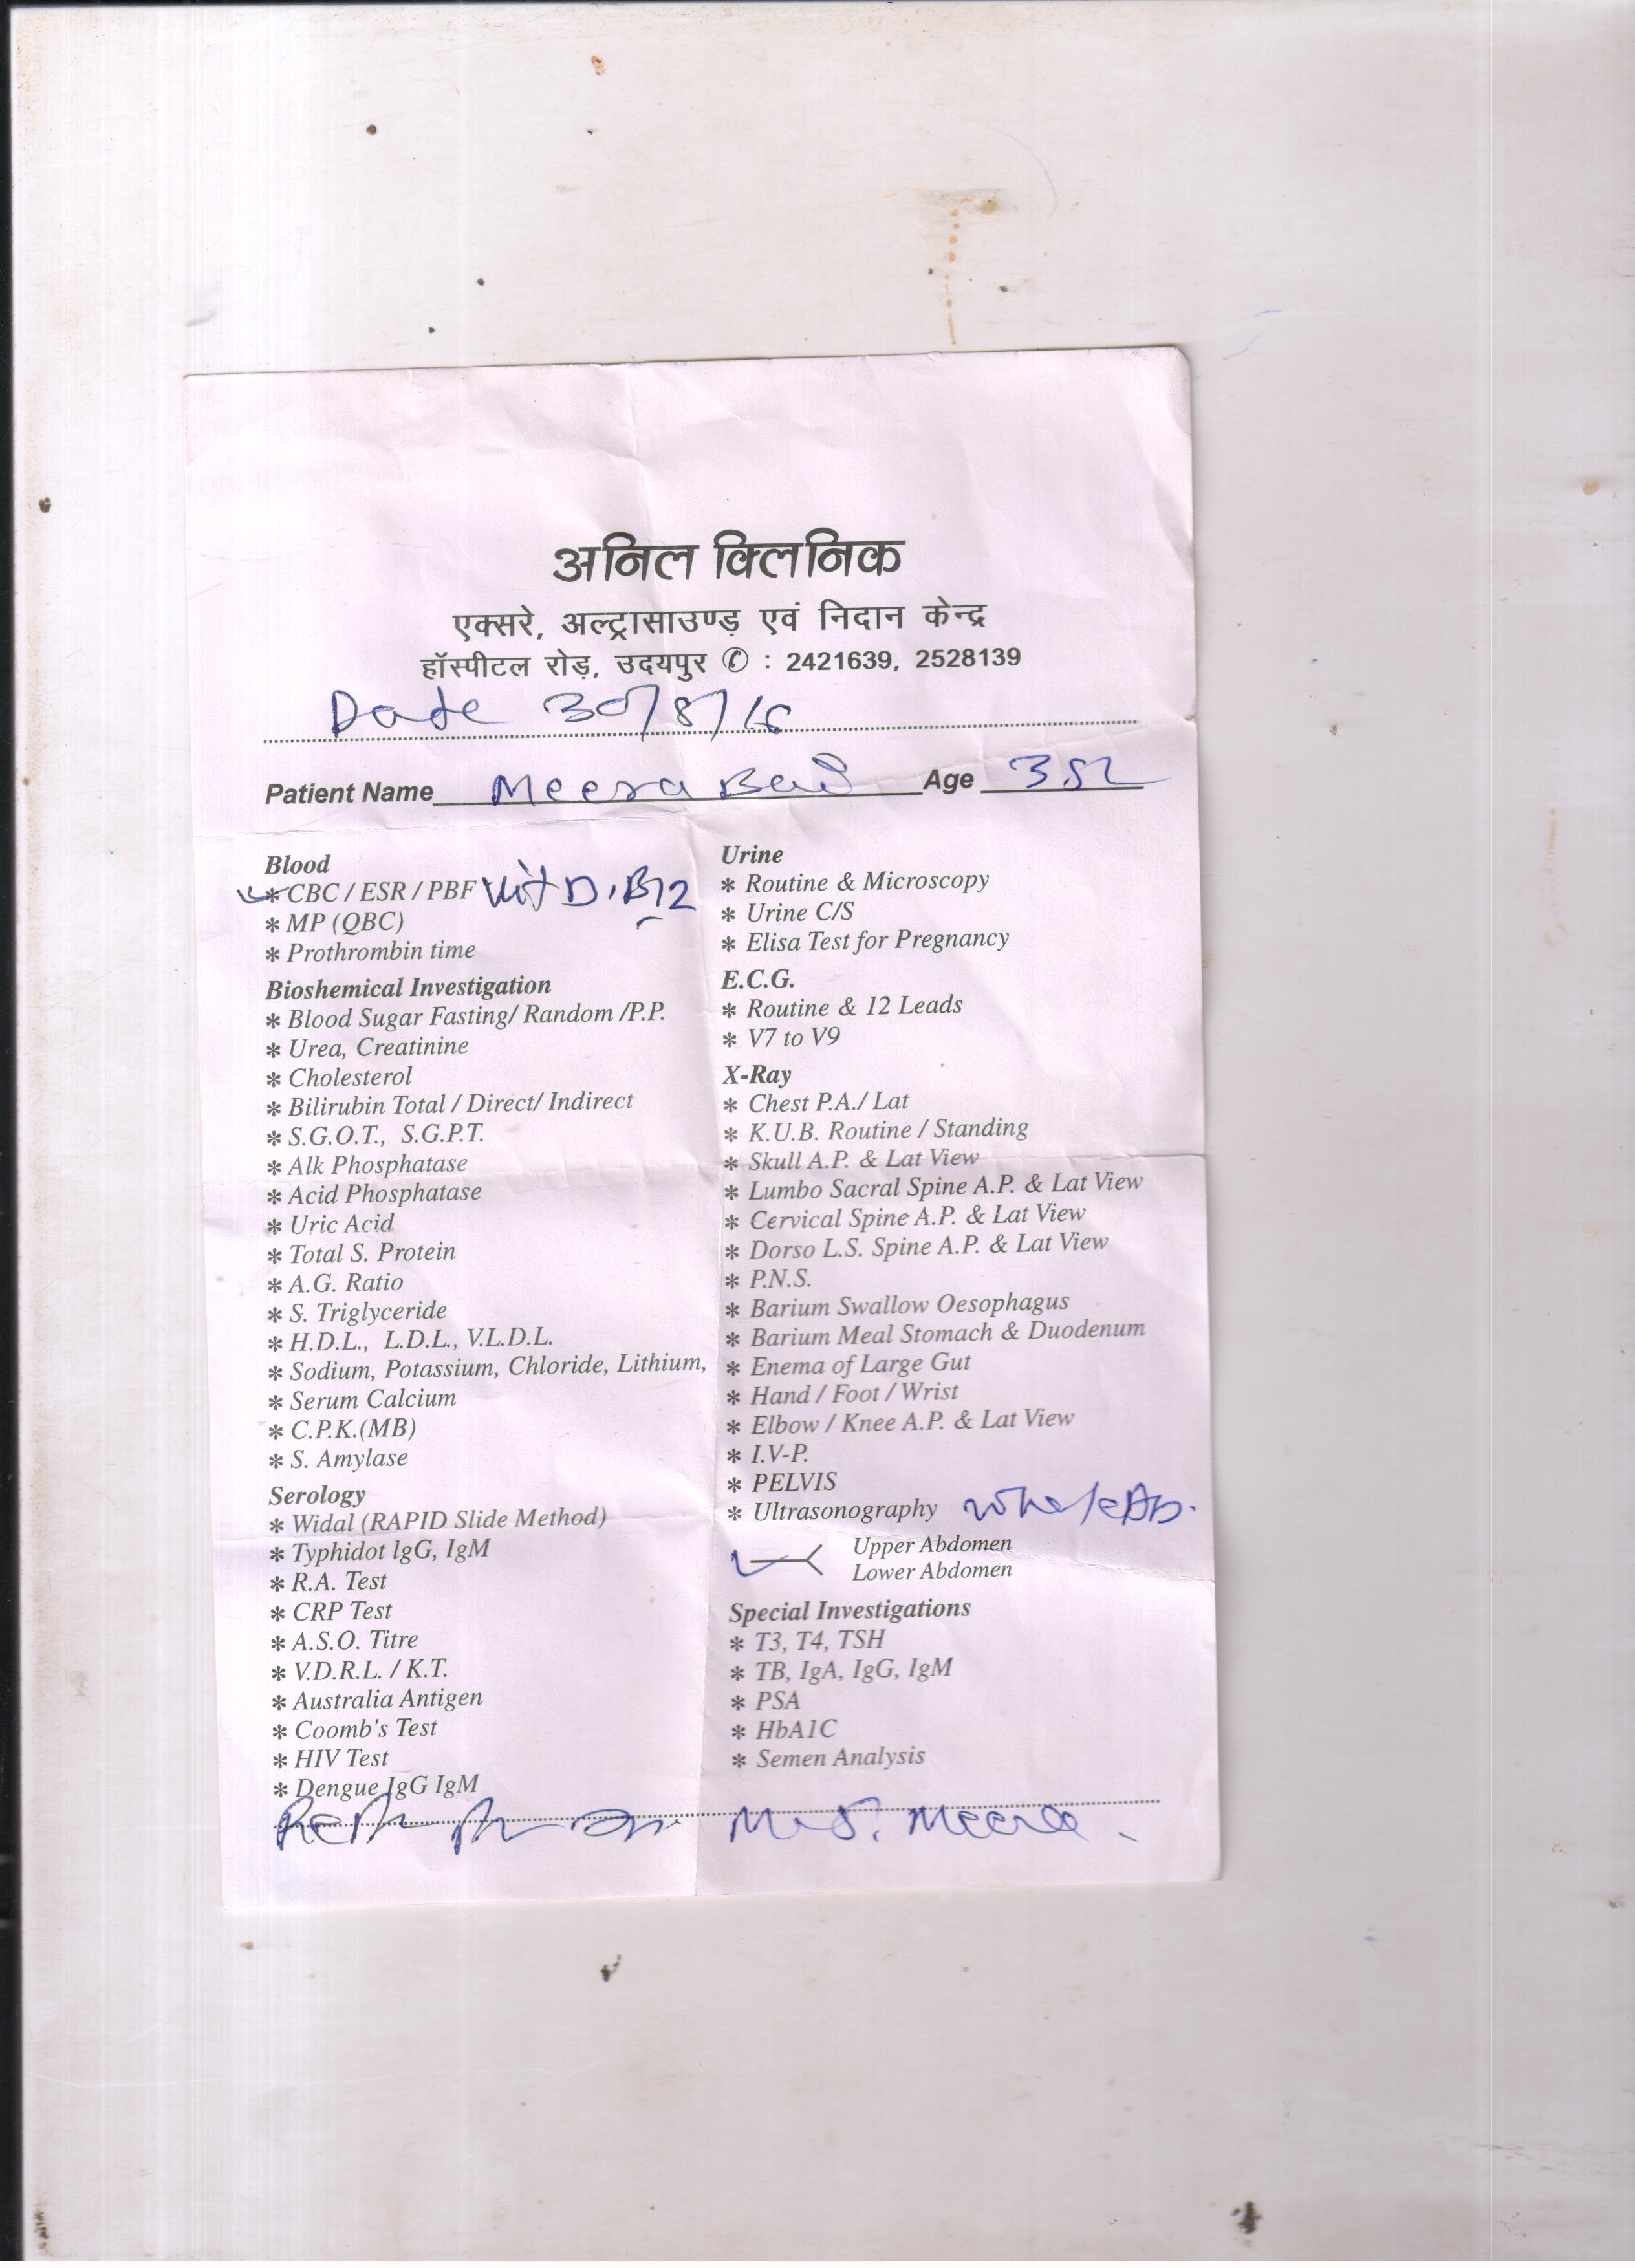 अनिल क्लिनिक
एक्सरे, अल्ट्रासाउण्ड़ एवं निदान केन्द्र
हॉस्पीटल रोड़, उदयपुर ✆ : 2421639, 2528139
Date 30/8/16
Patient Name Meera Bai Age 352
Blood
* CBC / ESR / PBF Vit D, B12
* MP (QBC)
* Prothrombin time
Bioshemical Investigation
* Blood Sugar Fasting/ Random /P.P.
* Urea, Creatinine
* Cholesterol
* Bilirubin Total / Direct/ Indirect
* S.G.O.T., S.G.P.T.
* Alk Phosphatase
* Acid Phosphatase
* Uric Acid
* Total S. Protein
* A.G. Ratio
* S. Triglyceride
* H.D.L., L.D.L., V.L.D.L.
* Sodium, Potassium, Chloride, Lithium,
* Serum Calcium
* C.P.K.(MB)
* S. Amylase
Serology
* Widal (RAPID Slide Method)
* Typhidot lgG, IgM
* R.A. Test
* CRP Test
* A.S.O. Titre
* V.D.R.L. / K.T.
* Australia Antigen
* Coomb's Test
* HIV Test
* Dengue IgG IgM
Urine
* Routine & Microscopy
* Urine C/S
* Elisa Test for Pregnancy
E.C.G.
* Routine & 12 Leads
* V7 to V9
X-Ray
* Chest P.A./ Lat
* K.U.B. Routine / Standing
* Skull A.P. & Lat View
* Lumbo Sacral Spine A.P. & Lat View
* Cervical Spine A.P. & Lat View
* Dorso L.S. Spine A.P. & Lat View
* P.N.S.
* Barium Swallow Oesophagus
* Barium Meal Stomach & Duodenum
* Enema of Large Gut
* Hand / Foot / Wrist
* Elbow / Knee A.P. & Lat View
* I.V-P.
* PELVIS
* Ultrasonography Whole Ab.
Upper Abdomen
Lower Abdomen
Special Investigations
* T3, T4, TSH
* TB, IgA, IgG, IgM
* PSA
* HbA1C
* Semen Analysis
Meera